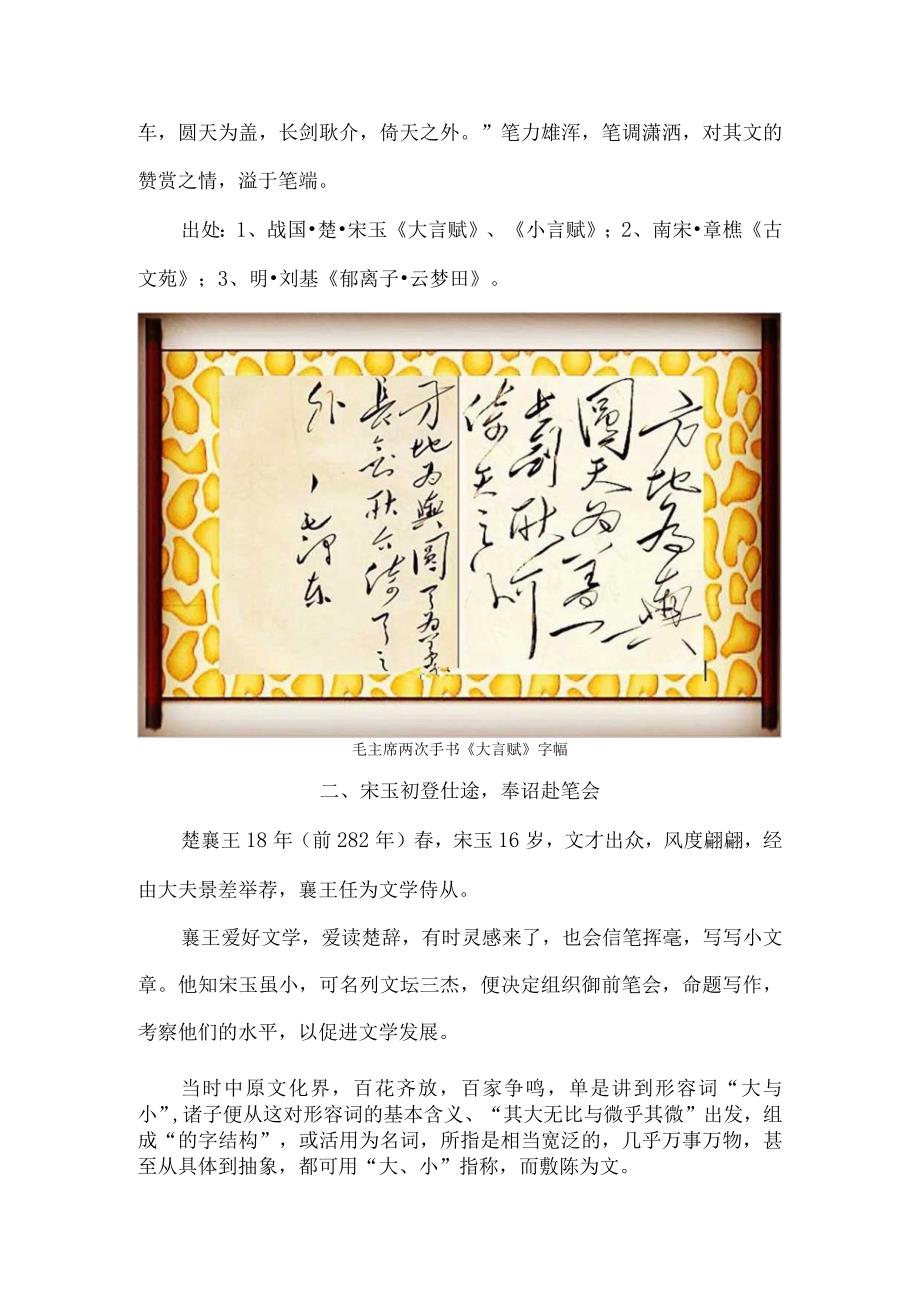 车，圆天为盖，长剑耿介，倚天之外。”笔力雄浑，笔调潇洒，对其文的
赞赏之情，溢于笔端。
出处：1、战国•楚•宋玉《大言赋》、《小言赋》；2、南宋•章樵《古
文苑》；3、明•刘基《郁离子•云梦田》。
方地為輿
圓天为盖
长劍耿介
倚天之外
方地为輿圓天为蓋
長剑耿介倚天之
外
毛泽东
毛主席两次手书《大言赋》字幅
二、宋玉初登仕途，奉诏赴笔会
楚襄王18年（前282年）春，宋玉16岁，文才出众，风度翩翩，经
由大夫景差举荐，襄王任为文学侍从。
襄王爱好文学，爱读楚辞，有时灵感来了，也会信笔挥毫，写写小文
章。他知宋玉虽小，可名列文坛三杰，便决定组织御前笔会，命题写作，
考察他们的水平，以促进文学发展。
当时中原文化界，百花齐放，百家争鸣，单是讲到形容词“大与
小”,诸子便从这对形容词的基本含义、“其大无比与微乎其微”出发，组
成“的字结构”，或活用为名词，所指是相当宽泛的，几乎万事万物，甚
至从具体到抽象，都可用“大、小”指称，而敷陈为文。